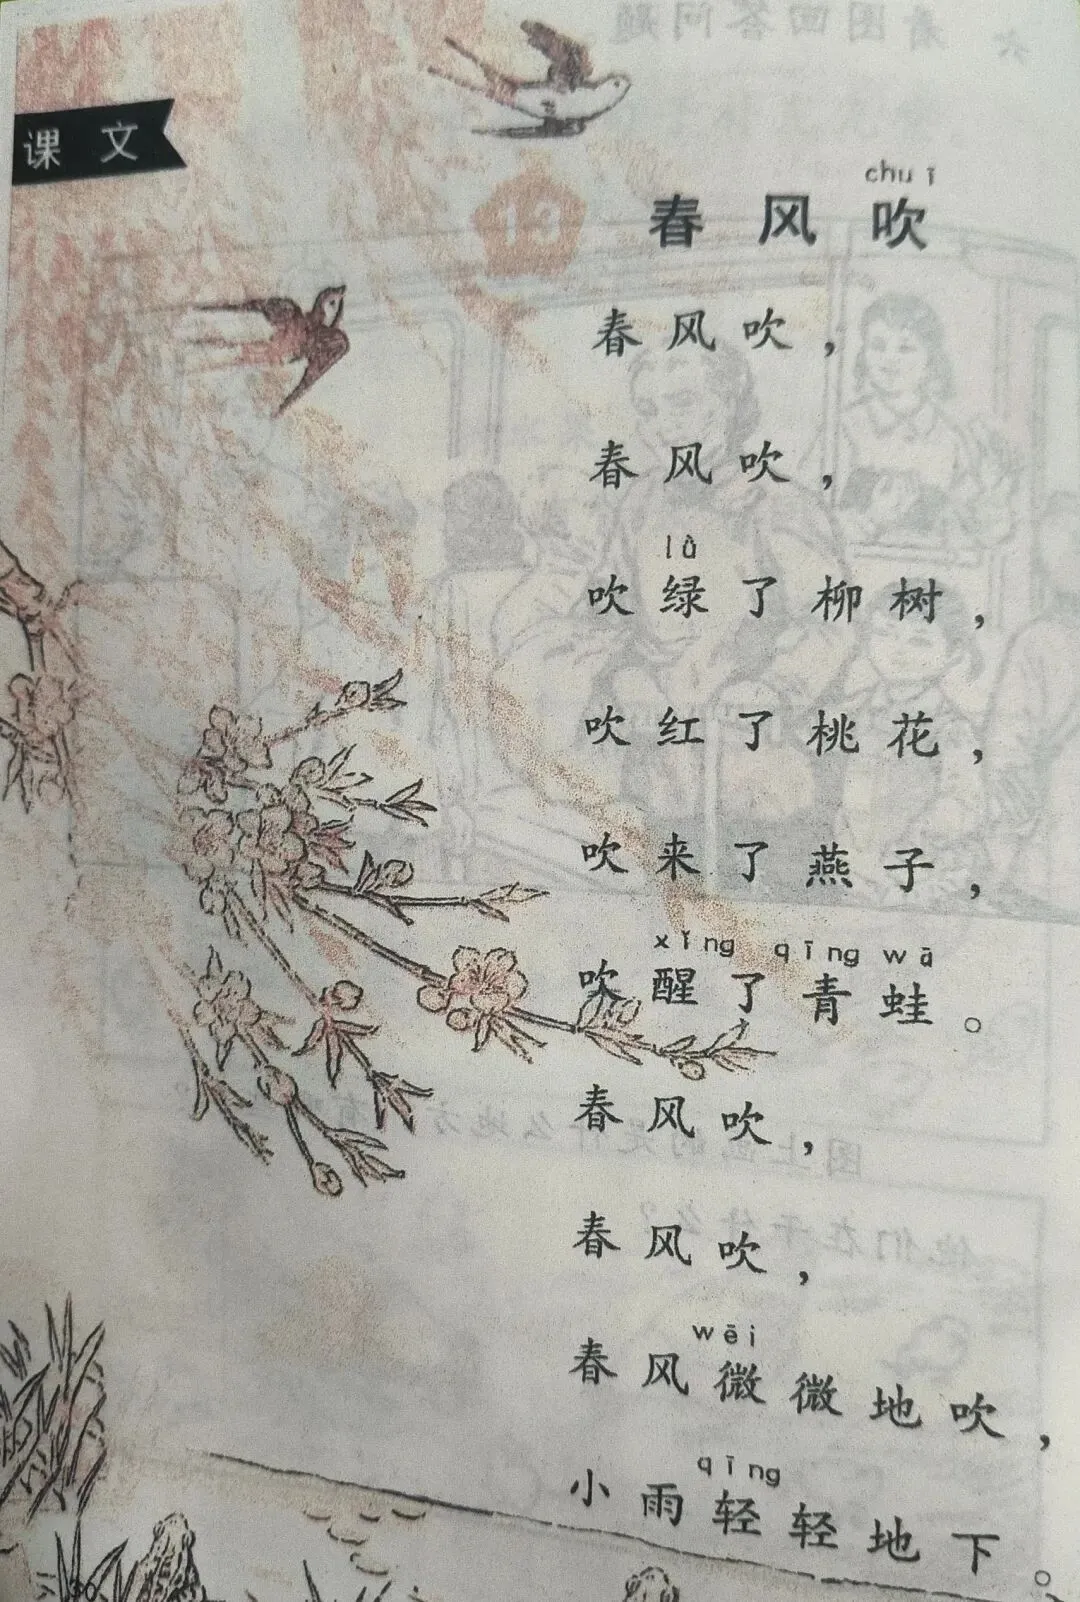 六 看图回答问题
课文
13
chuī
春风吹
春风吹，
春风吹，
lǜ
吹绿了柳树，
吹红了桃花，
吹来了燕子，
xǐng qīng wā
吹醒了青蛙。
春风吹，
春风吹，
wēi
春风微微地吹，
qīng
小雨轻轻地下。